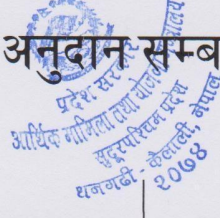 अनुदान सम्ब
प्रदेश सरकार
आर्थिक मामिला तथा योजना मन्त्रालय
सुदूरपश्चिम प्रदेश
धनगढी - कैलाली, नेपाल
२०७४